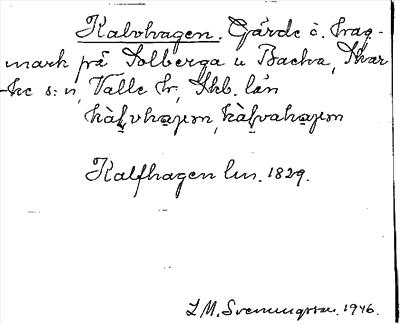 Kalvhagen. Gärde o. hag-
mark på Solberga u Backa, Skar
-ke s:n, Valle hr, Skb. län
Kalfhagen lm. 1829.
L M. Svenungsson. 1946.